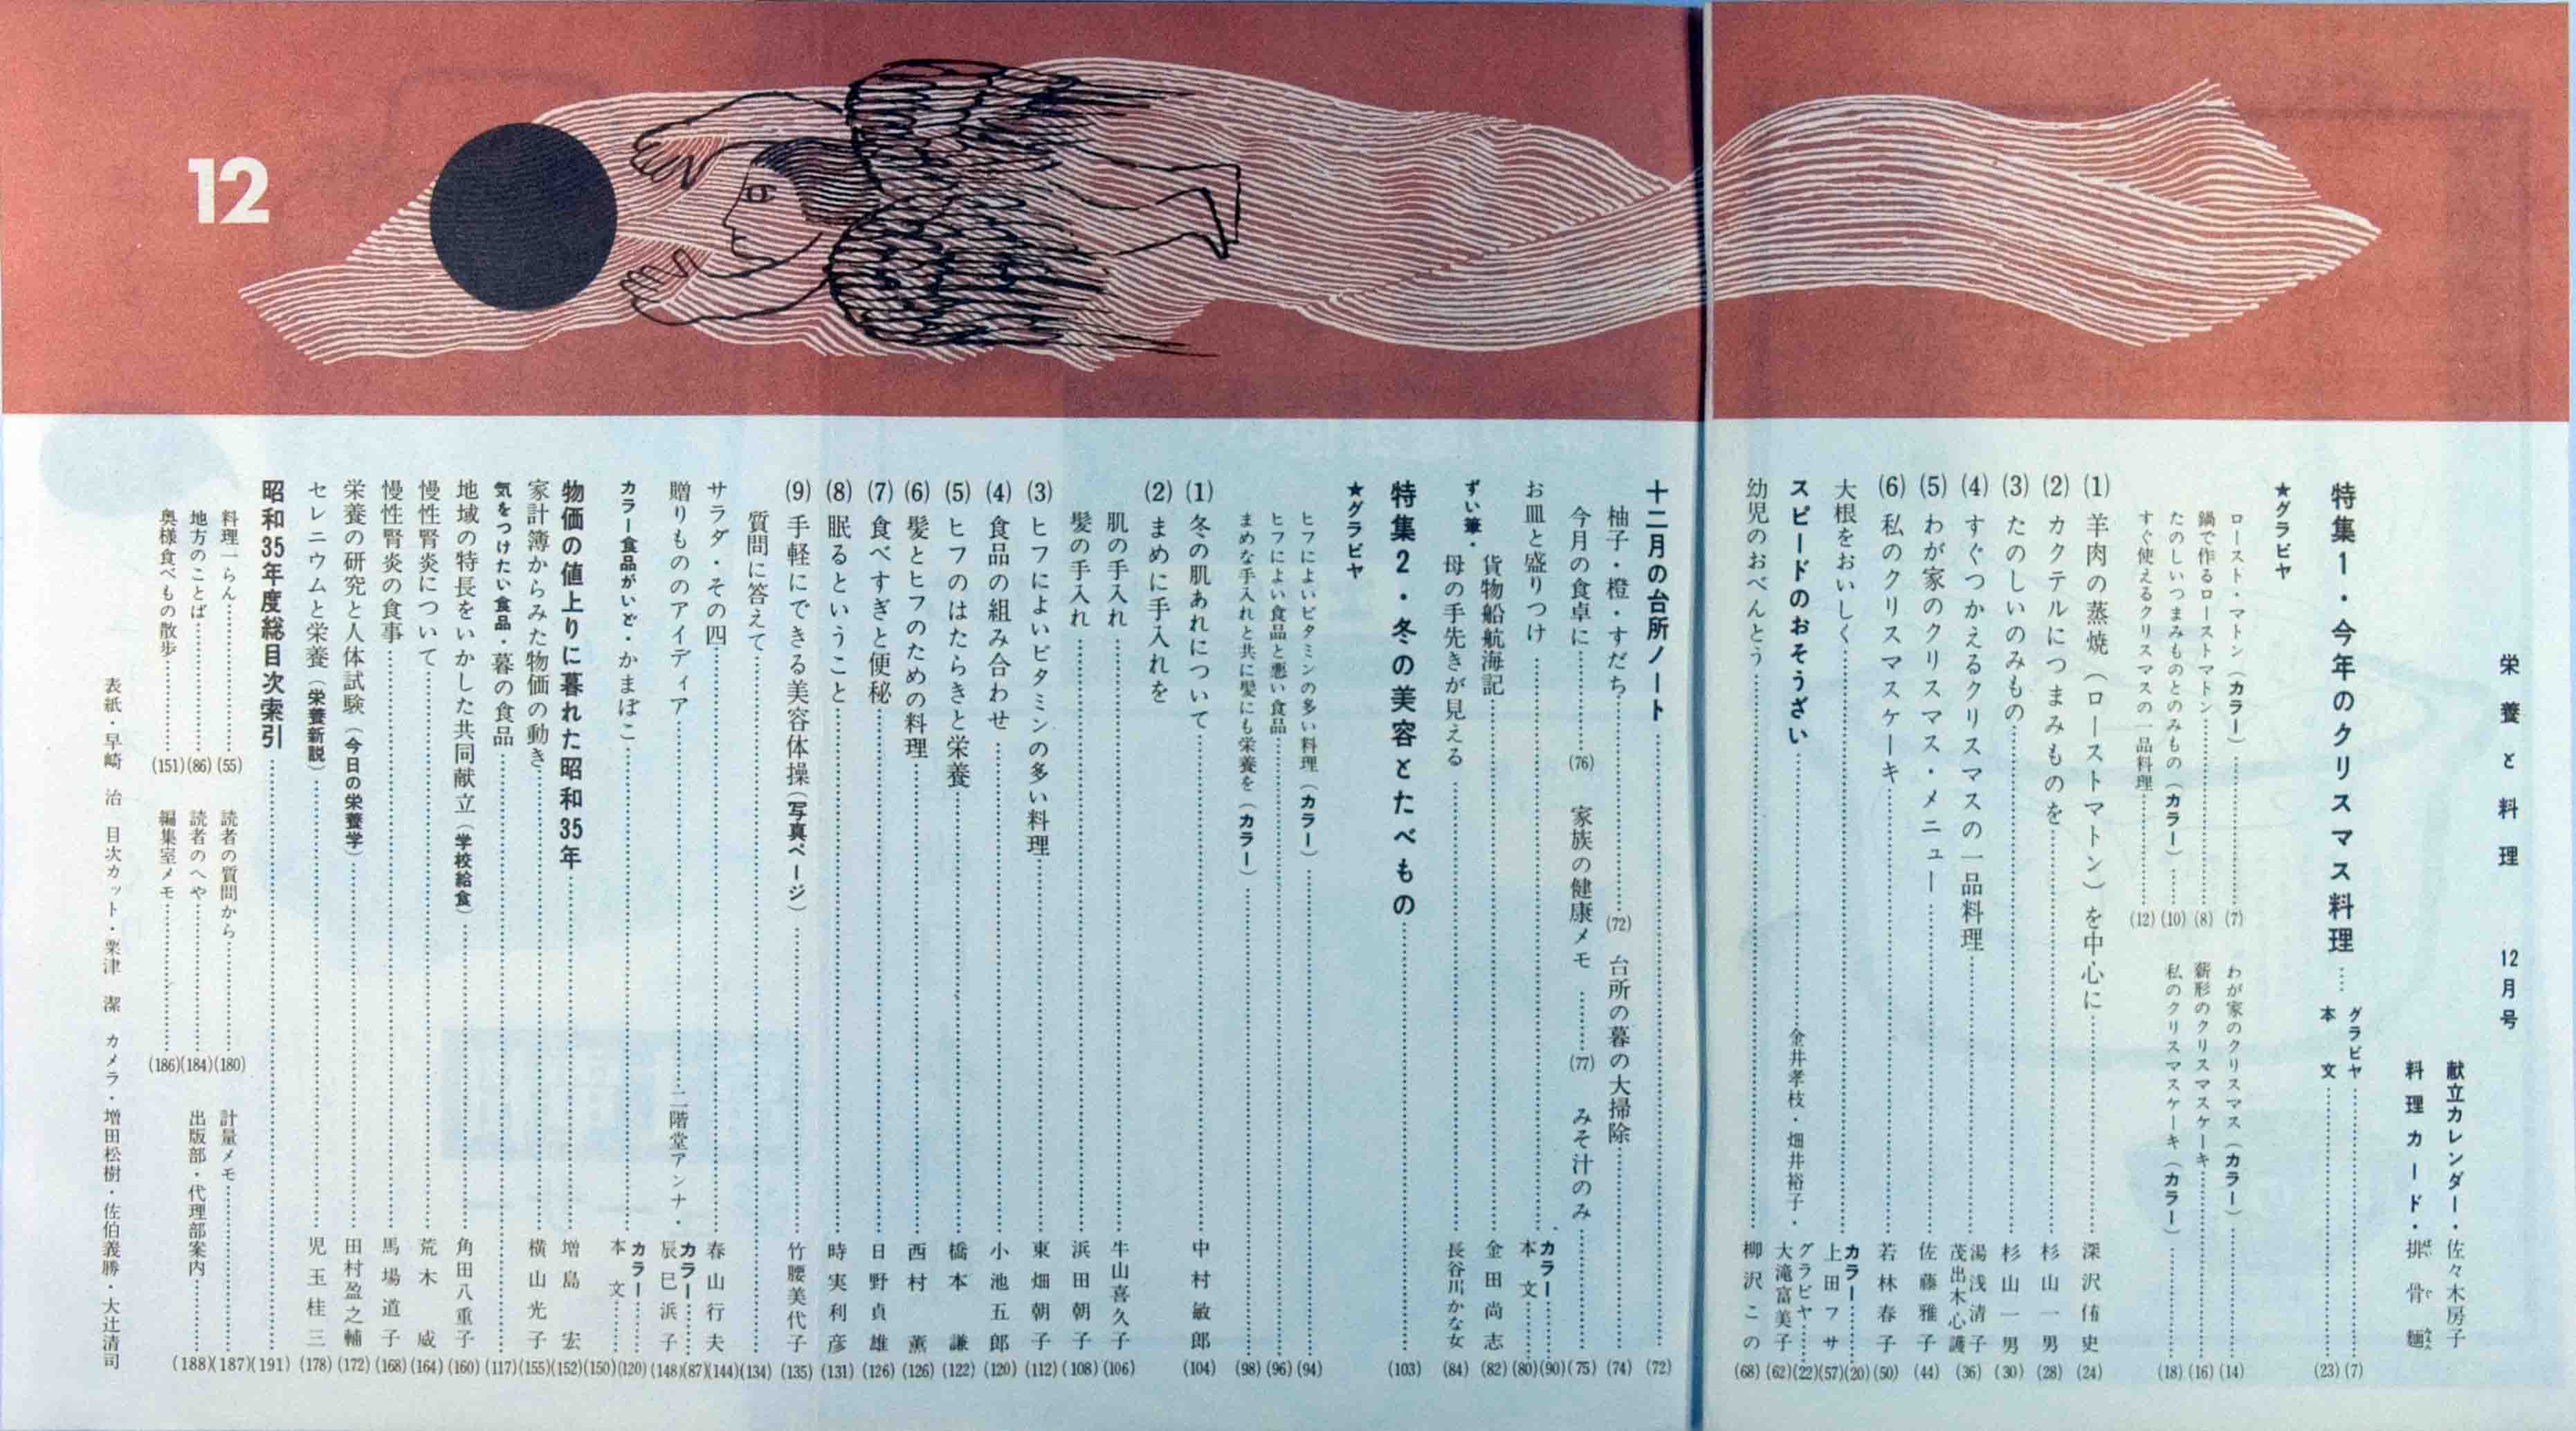 12
栄養と料理 12月号
献立カレンダー・佐々木房子
料理カード・排骨麺
特集1・今年のクリスマス料理……グラビヤ……(7)
本文……(23)
★グラビヤ
ロースト・マトン(カラー)……(7)
鍋で作るローストマトン……(8)
たのしいつまみものとのみもの(カラー)……(10)
すぐ使えるクリスマスの一品料理……(12)
わが家のクリスマス(カラー)……(14)
薪形のクリスマスケーキ……(16)
私のクリスマスケーキ(カラー)……(18)
(1) 羊肉の蒸焼(ローストマトン)を中心に……深沢侑史(24)
(2) カクテルにつまみものを……杉山一男(28)
(3) たのしいのみもの……杉山一男(30)
(4) すぐつかえるクリスマスの一品料理……湯浅清子 茂出木心護(36)
(5) わが家のクリスマス・メニュー……佐藤雅子(44)
(6) 私のクリスマスケーキ……若林春子(50)
大根をおいしく……カラー……(20)
上田フサ(57)
スピードのおそうざい……金井孝枝・畑井裕子・グラビヤ……(22)
大滝富美子(62)
幼児のおべんとう……柳沢この(68)
十二月の台所ノート……(72)
柚子・橙・すだち……(72) 台所の暮の大掃除……(74)
今月の食卓に……(76) 家族の健康メモ……(77) みそ汁のみ……(75)
お皿と盛りつけ……カラー……(90)
本文……(80)
貨物船航海記……金田尚志(82)
ずい筆・母の手先きが見える……長谷川かな女(84)
特集2・冬の美容とたべもの……(103)
★グラビヤ
ヒフによいビタミンの多い料理(カラー)……(94)
ヒフによい食品と悪い食品……(96)
まめな手入れと共に髪にも栄養を(カラー)……(98)
(1) 冬の肌あれについて……中村敏郎(104)
(2) まめに手入れを
肌の手入れ……牛山喜久子(106)
髪の手入れ……浜田朝子(108)
(3) ヒフによいビタミンの多い料理……東畑朝子(112)
(4) 食品の組み合わせ……小池五郎(120)
(5) ヒフのはたらきと栄養……橋本謙(122)
(6) 髪とヒフのための料理……西村薫(126)
(7) 食べすぎと便秘……日野貞雄(126)
(8) 眠るということ……時実利彦(131)
(9) 手軽にできる美容体操(写真ページ)……竹腰美代子(135)
質問に答えて……(134)
サラダ・その四……春山行夫(144)
贈りもののアイディア……二階堂アンナ・カラー……(87)
辰巳浜子(148)
カラー食品がいど・かまぼこ……カラー……(120)
本文……(150)
物価の値上りに暮れた昭和35年……増島宏(152)
家計簿からみた物価の動き……横山光子(155)
気をつけたい食品・暮の食品……(117)
地域の特長をいかした共同献立(学校給食)……角田八重子(160)
慢性腎炎について……荒木威(164)
慢性腎炎の食事……馬場道子(168)
栄養の研究と人体試験(今日の栄養学)……田村盈之輔(172)
セレニウムと栄養(栄養新説)……児玉桂三(178)
昭和35年度総目次索引……(191)
料理一らん……(55) 読者の質問から……(180) 計量メモ……(187)
地方のことば……(86) 読者のへや……(184) 出版部・代理部案内……(188)
奥様食べもの散歩……(151) 編集室メモ……(186)
表紙・早崎 治 目次カット・粟津 潔 カメラ・増田松樹・佐伯義勝・大辻清司